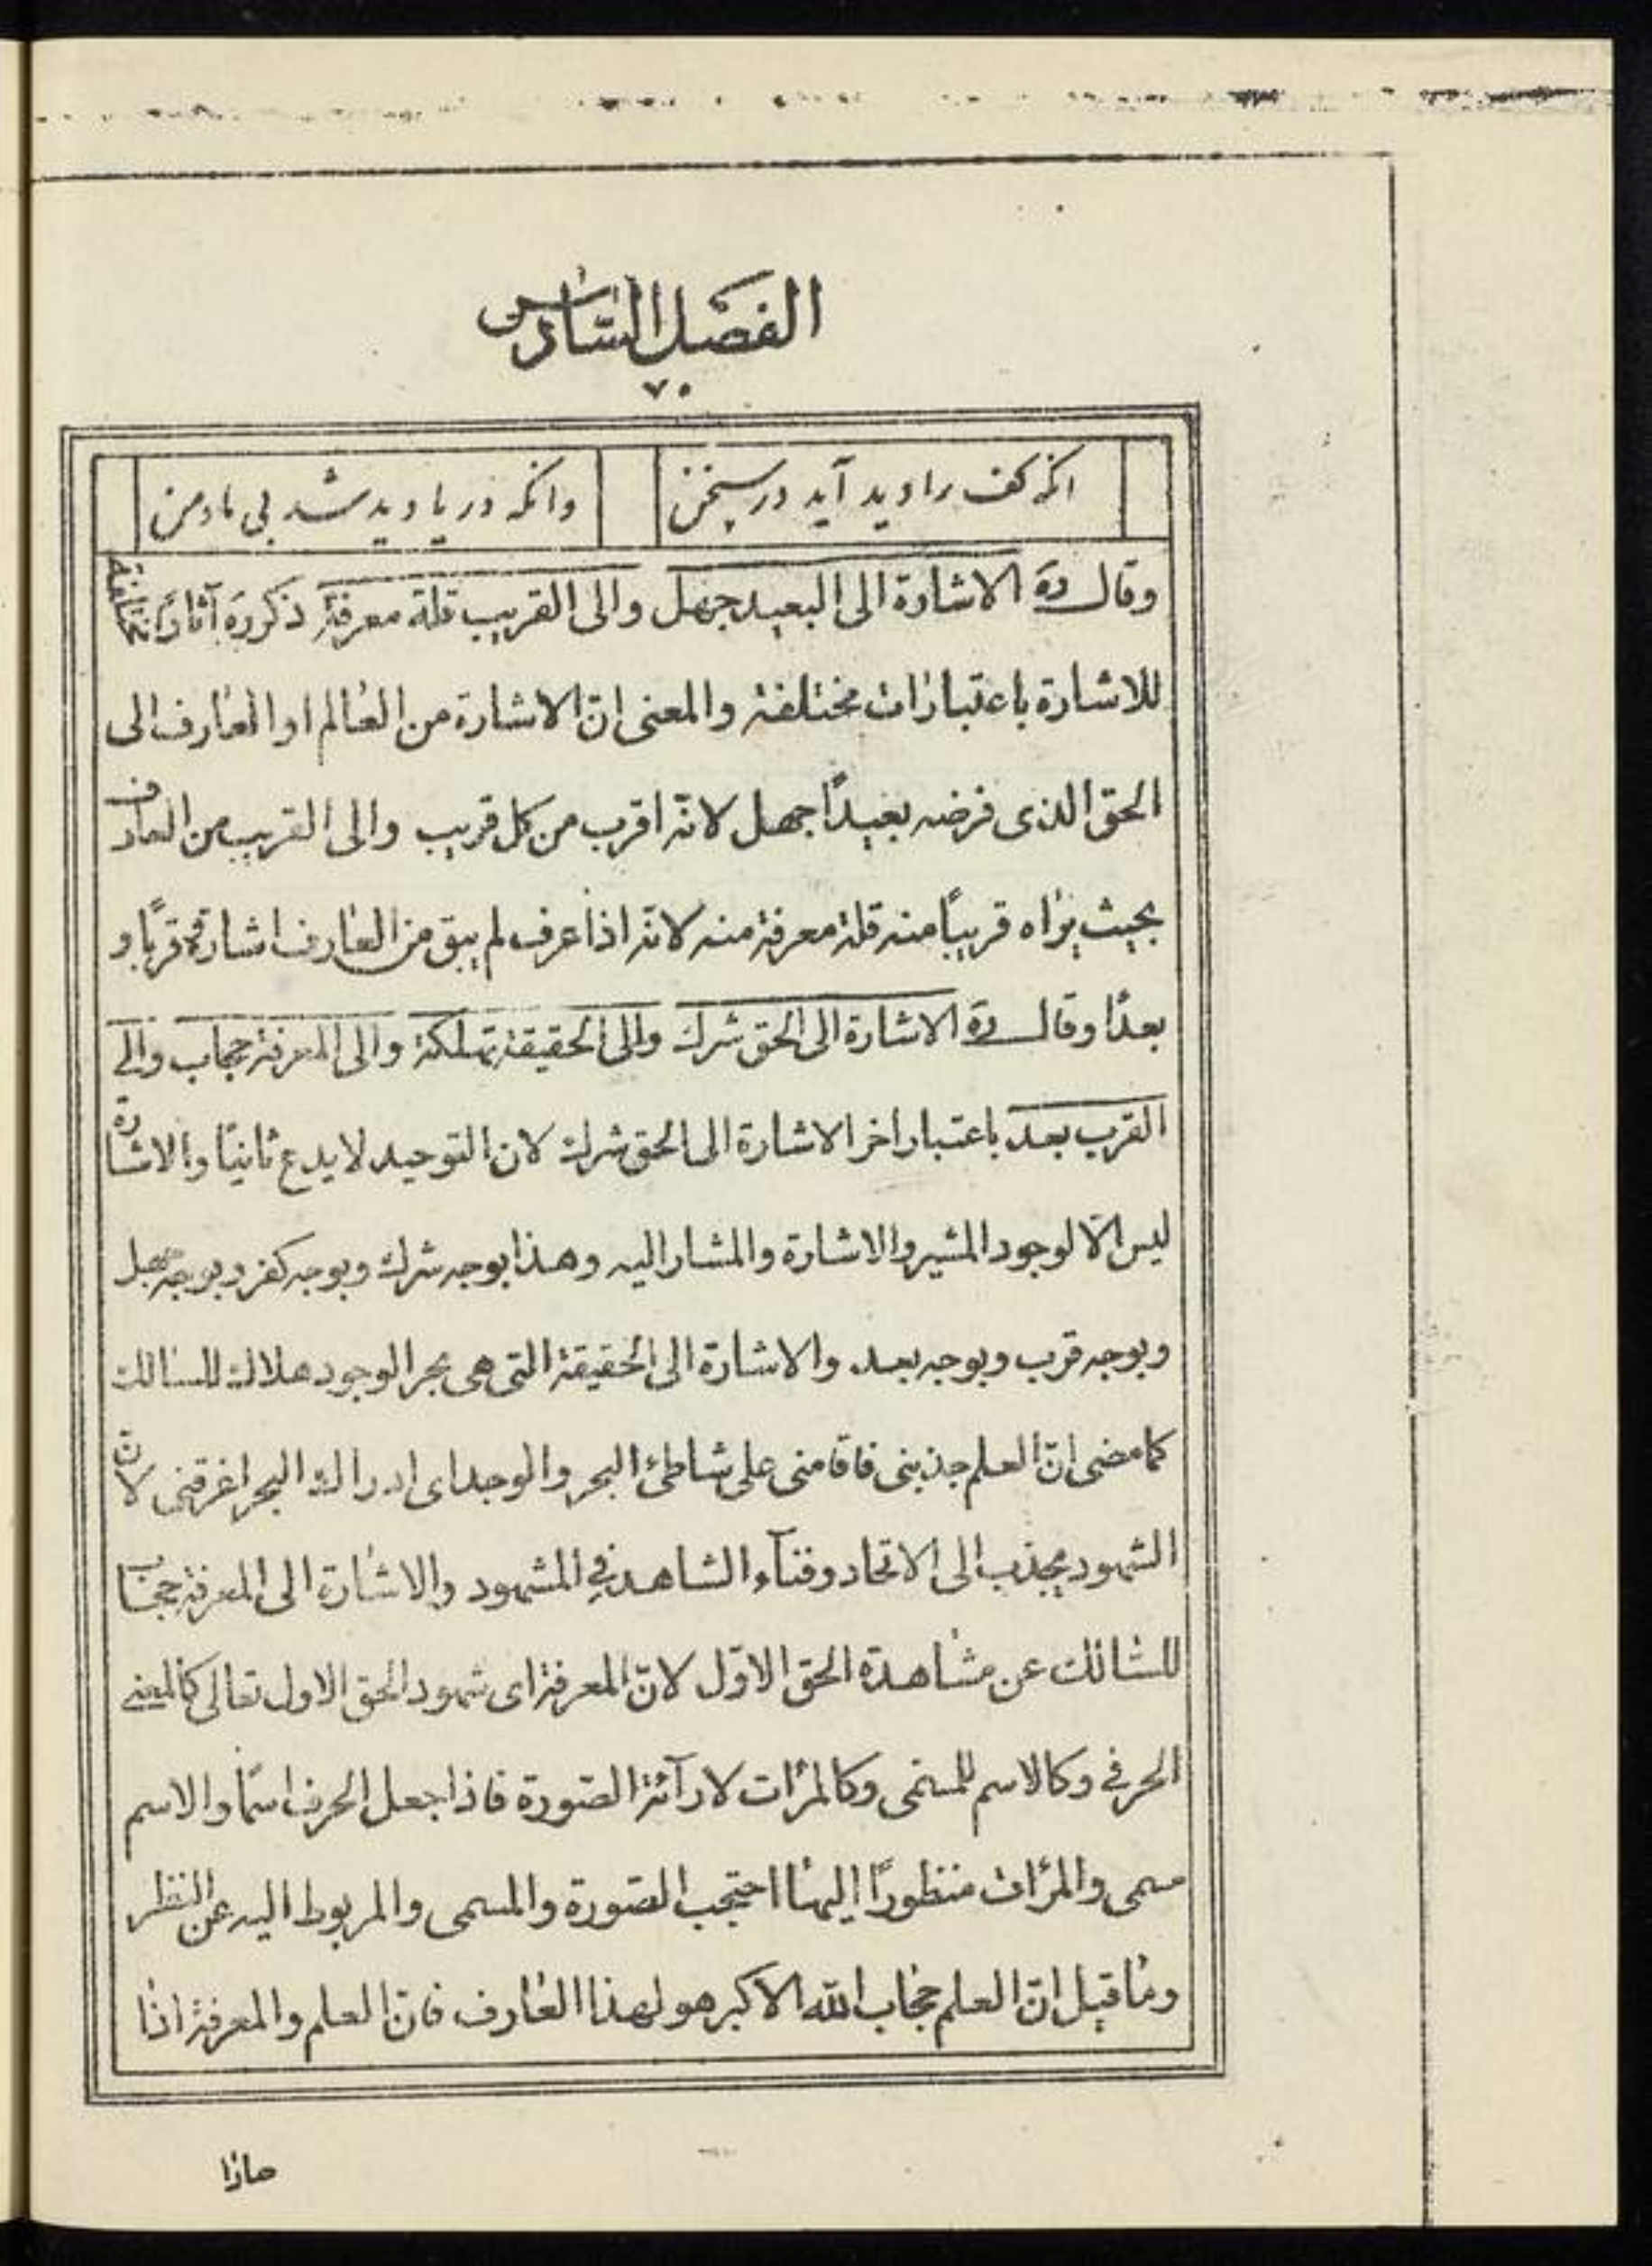 الفصل السادس
٧٠
انکه کف را دید آید در سخن
وانکه دریا دید شد بی ما و من
وقال ره الاشارة الى البعيد جهل والى القريب قلة معرفة ذكر ره آثارًا مختلفة
للاشارة باعتبارات مختلفة والمعنى انّ الاشارة من العالم او العارف الى
الحق الذى فرضه بعيدًا جهل لانّه اقرب من كل قريب والى القريب من العارف
بحيث يراه قريبًا منه قلة معرفة منه لانّه اذا عرف لم يبق من العارف اشارة وقربًا و
بعدًا وقال ره الاشارة الى الحق شرك والى الحقيقة تهلكة والى المعرفة حجاب والى
القرب بعد باعتبار اخر الاشارة الى الحق شرك لان التوحيد لا يدع ثانيًا والاشارة
ليس الّا لوجود المشير والاشارة والمشار اليه وهذا بوجه شرك وبوجه كفر وبوجه جهل
وبوجه قرب وبوجه بعد والاشارة الى الحقيقة التى هى بحر الوجود هلاك للسالك
كما مضى انّ العلم جذبنى فاقامنى على شاطئ البحر والوجد اى ادراك البحر اغرقنى لانّ
الشهود يجذب الى الاتحاد وفنآء الشاهد في المشهود والاشارة الى المعرفة حجاب
للسالك عن مشاهدة الحق الاوّل لانّ المعرفة اى شهود الحق الاول تعالى كالمعنى
الحرفي وكالاسم للمسمى وكالمرٔات لارآئة الصّورة فاذا جعل الحرف اسمًا والاسم
مسمى والمرٔات منظورًا اليها احتجب الصّورة والمسمى والمربوط اليه عن النظر
وما قيل انّ العلم حجاب الله الاكبر هو لهذا العارف فانّ العلم والمعرفة اذا